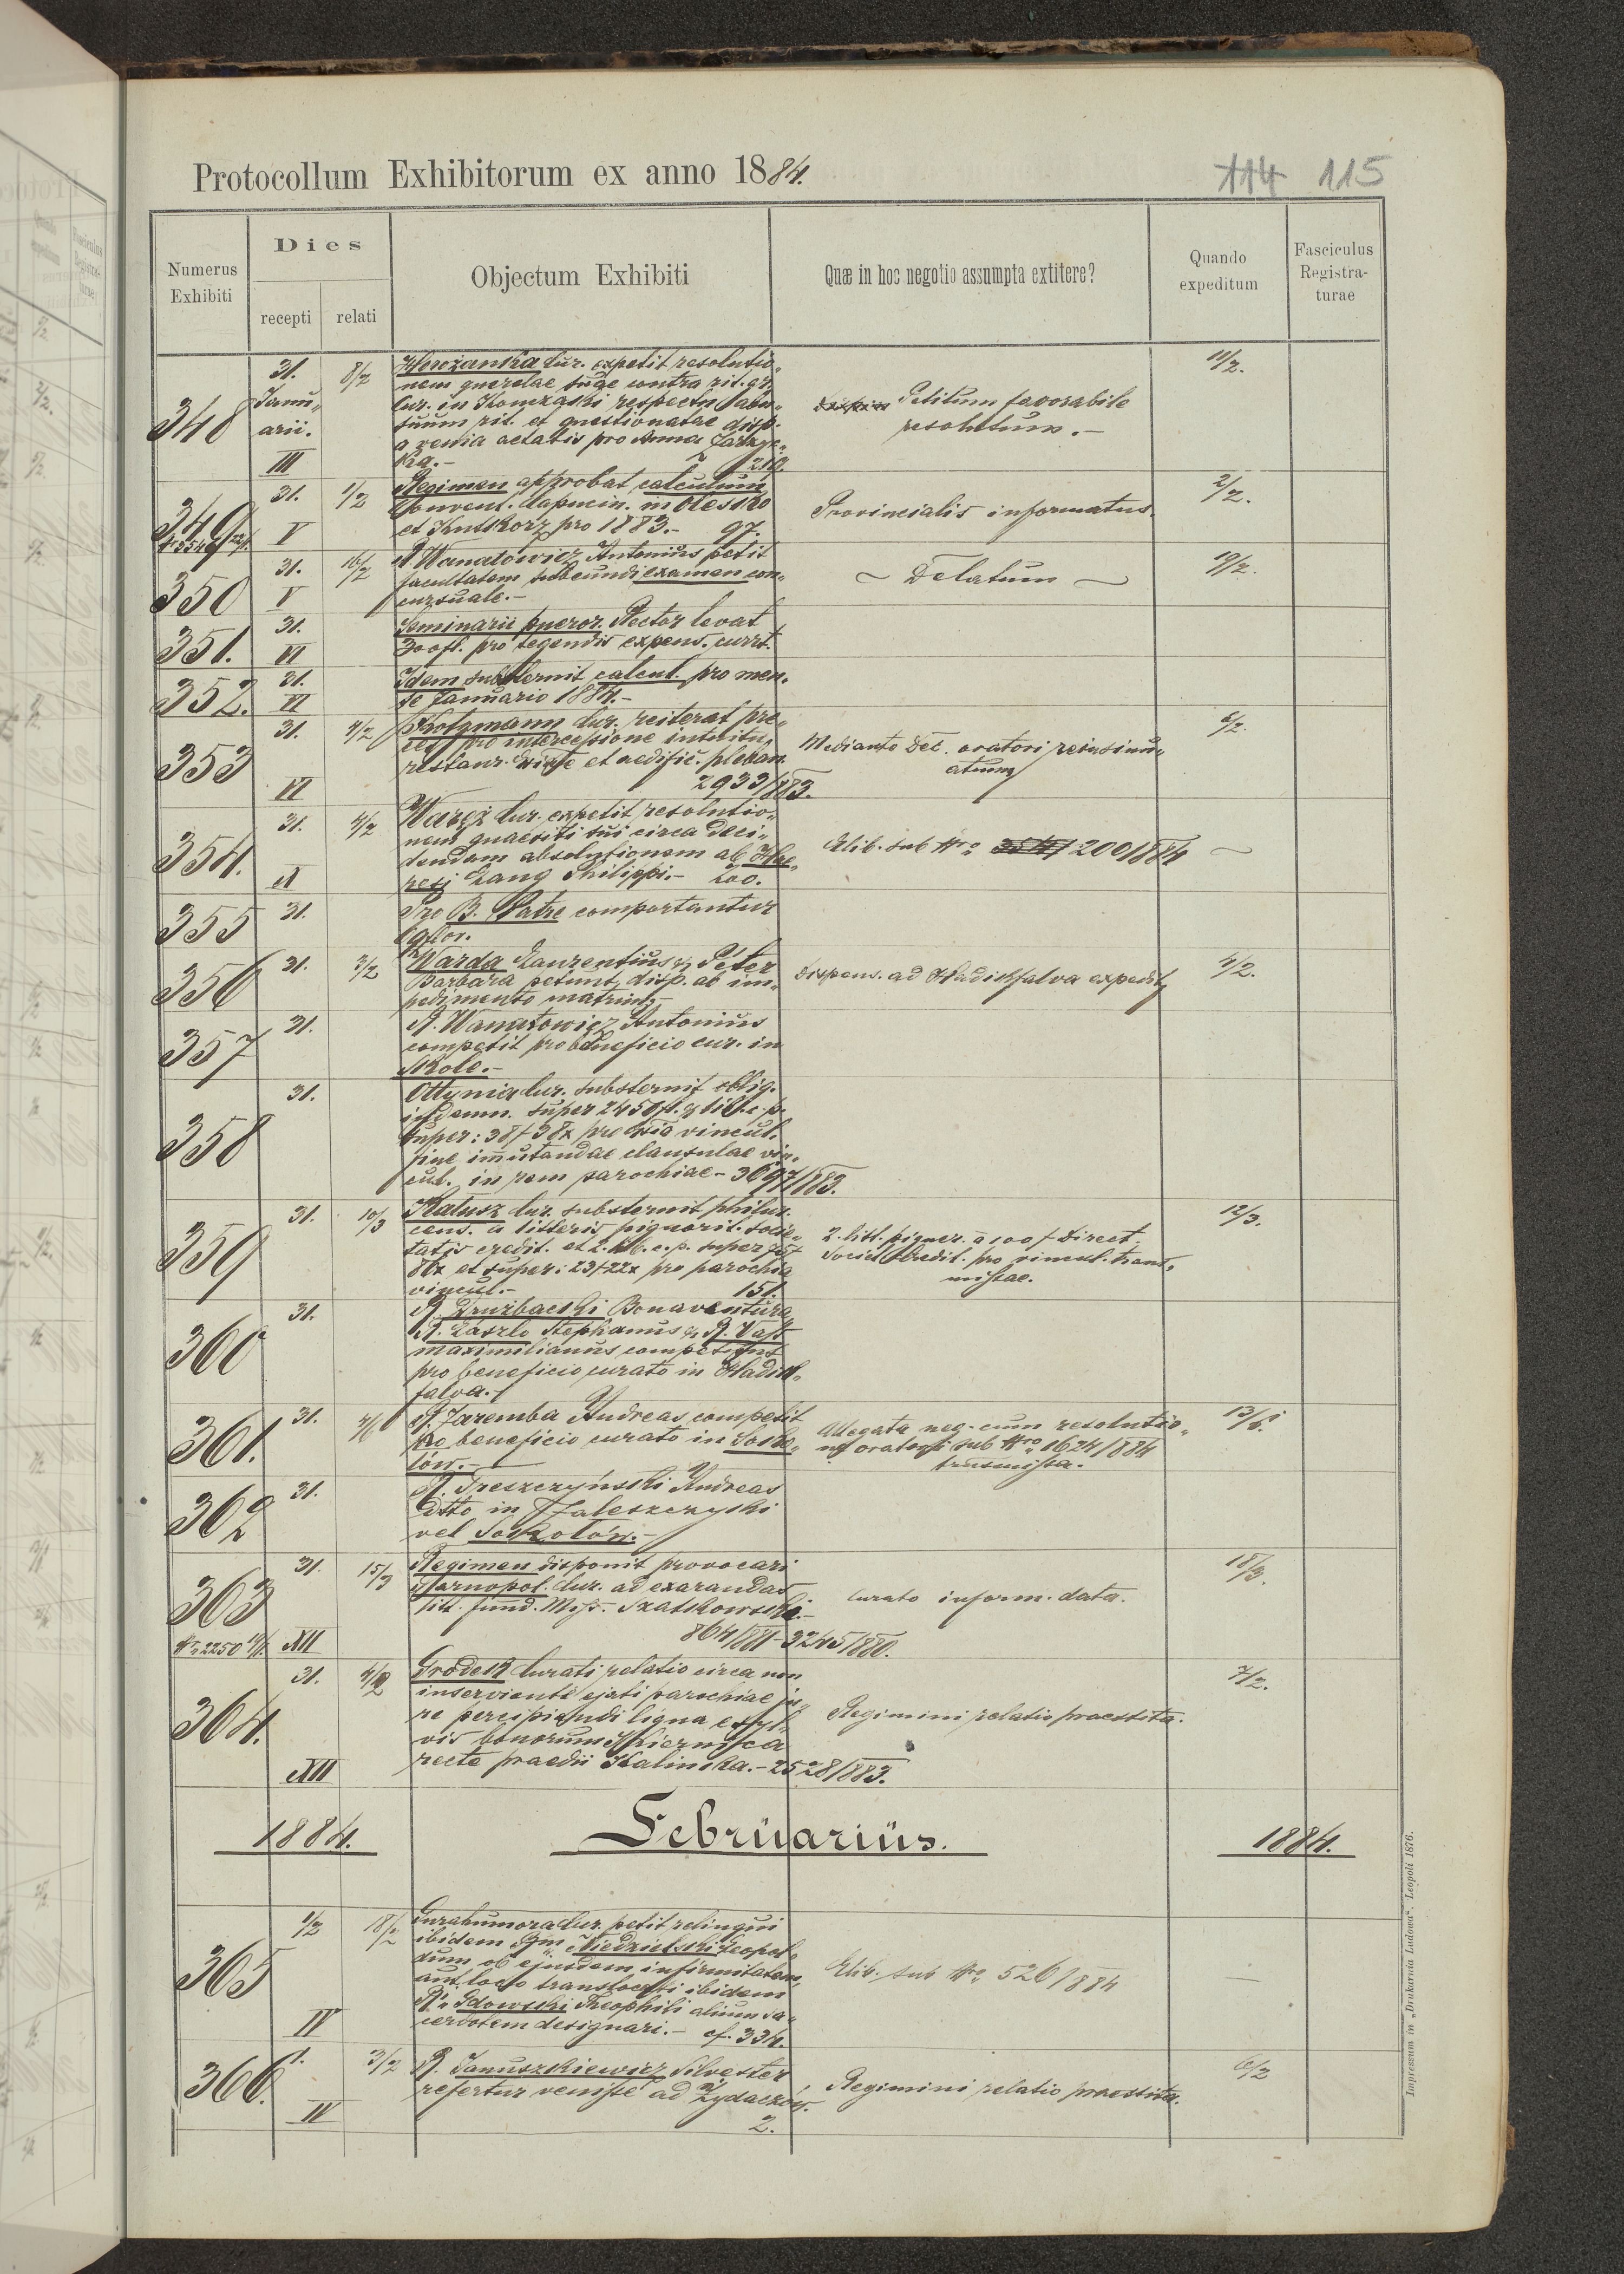 Protocollum Exhibitorum ex anno 1884.
114 115
Numerus Exhibiti
Dies
recepti
relati
Objectum Exhibiti
Quæ in hoc negotio assumpta extitere?
Quando expeditum
Fasciculus Registra-turae
348
31. Januarii.
III
8/2
cur. expetit resolutio„
nem querelae suae contra rit. gr.
cur. in respectu
rit. et questionatae disp.
a venia aetatis pro Anna
ka.- 210.
Petitum favorabile
resolutum.-
11/2.
349
31.
V
1/2
Regimen approbat calculum
Convent. Capucin. in Olesko
et Kutkorz pro 1883.- 97.
Provincialis informatus.
2/2.
350
31.
V
16/2
R. Wanatowicz Antonius petit
facultatem subeundi examen con„
cursuale.-
~ Delatum ~
19/2.
351.
31.
VI
Seminarii pueror. Rector levat
300 fl. pro tegendis expens. currt.
352.
31.
VI
Idem substernit calcul. pro men„
se Januario 1884.-
353
31.
VI
4/2
Kotzmann Cur. reiterat pre„
ces pro intercessione intuitu
restaur. et aedific. pleban.
2933/883.
Mediante Dec. oratori reinsinu„
atum
6/2.
354.
31.
X
4/2
Waręż Cur. expetit resolutio„
nem quaesiti sui circa deci„
dendam absolutionem ab Hae„
resi Lang Philippi.- 200.
Elib. sub Nro 200/884
355
31.
Pro B. Patre comportantur
356
31.
3/2
Warda Laurentius & Peter
Barbara petunt disp. ab im„
pedimento matrim.-
Dispens. ad Hadikfalva expedit
4/2.
357
31.
R. Wanatowicz Antonius
competit pro beneficio cur. in
Skole.-
358
31.
Ottynia Cur. substernit oblig.
indemn. super 2450 fl. & lib. c. p.
super: 38 f 38 x pro vincul.
fine immutandae clausulae vin„
cul. in rem parochiae - 3697/883.
359
31.
10/3
Kałusz Cur. substernit
a litteris pignorit. socie„
tatis credit. et 2. lib. c. p. super 75 f
86 x et super: 23 f 22 x pro parochia
vincul.- 151.
2. litt. pigner. a 100 f Direct.
Societ. Credit. pro vincul. trans„
missae.
12/3.
360
31.
R. Drużbacki Bonaventura
R. László Stephanus & R.
Maximilianus competunt
pro beneficio curato in Hadik„
falva.-
361.
31.
R. Zaremba Andreas competit
pro beneficio curato in Soko„
łów.-
Allegata neg. cum resolutio„
ne oratori sub Nro 1624/884
transmissa.
362
31.
R. Andreas
dtto in Zaleszczyki
vel Sokołów.-
363
Nr. 2250
31.
XII
15/3
Regimen disponit provocari
Tarnopol. Cur. ad exarandas
litt. fund. Miss. Szatkowski.-
864/881 - 3245/880.
Curato inform. data.
18/3.
364.
31.
XII
4/2
Gródek Curati relatio circa non
inservientē ejati parochiae ju„
re percipiendi ligna
vis bonorum
recte praedii Kalinka.- 2528/883.
Regimini relatio praestita.
7/2.
1884.
Februarius.
1884.
365
1/2
IV
18/2
Gurahumora Cur. petit relinqui
ibidem Niedzielski Leopol„
dum ob ejusdem infirmitatem,
aut loco translocati ibidem
R. Theophili alium sa„
cerdotem designari.- cf. 334.
Elib. sub Nro 526/884
366.
1.
IV
3/2
R. Januszkiewicz Silvester
refertur venisse ad Żydaczów.
2.
Regimini relatio praestita.
6/2
Impressum in „Drukarnia Ludowa". Leopoli 1876.